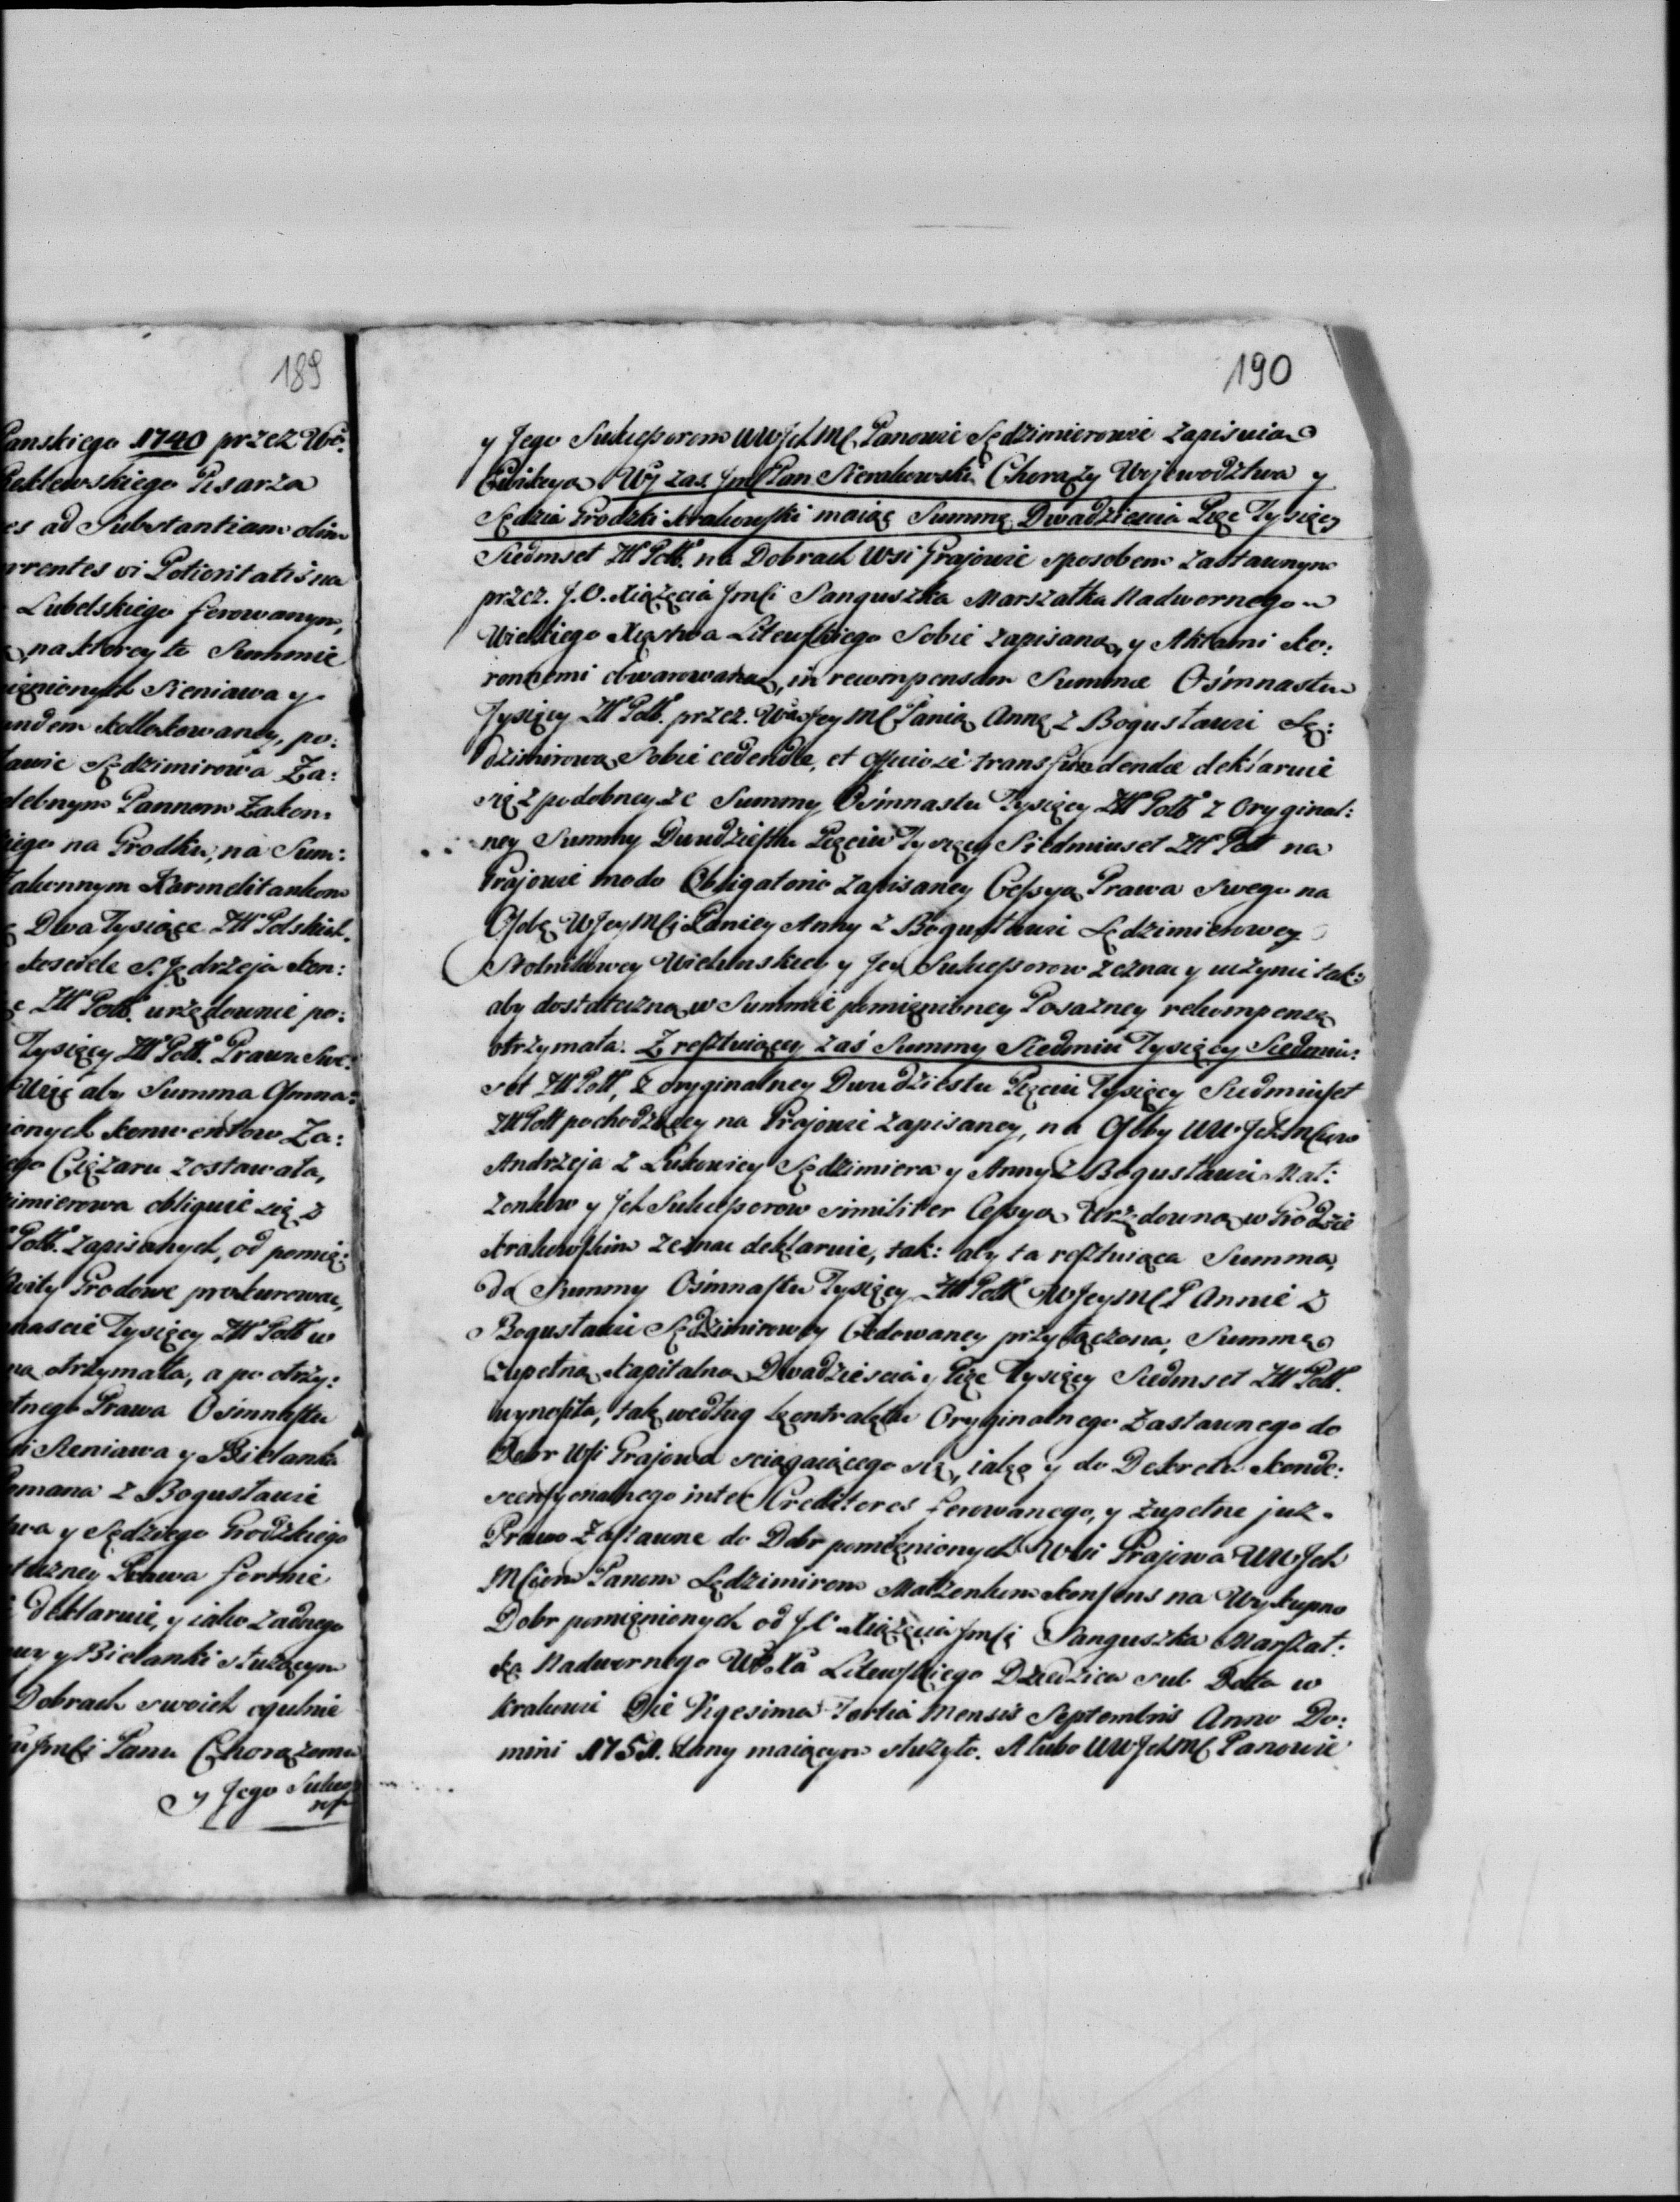 189
Panskiego 1740 przez Wo:
Peklewskiego Pisarza
es ad Substantiam olim
rrentes vi Potioritatis na
Lubelskiego ferowanym,
na ktorey to Summie
ienionych Sieniawa y
undem kollokowaney, po:
ławie Sędzimirowa Za:
elebnym Pannom Zakon:
iego na Grodku, na Sum:
Zakonnym Karmelitankom
Dwa Tysiące Złł Polskich
kosciele S. Jędrzeja kon:
Złł Poll. urzędownie po:
Tysięcy Złł Poll. Prawu Swe:
Więc aby Summa Osmna:
ionych Konwentow Za:
ego Ciężaru zostawała,
zimierowa obliguie się z
Poll. zapisanych, od pomię:
kwity Grodowe prokurować,
naście Tysięcy Złł Poll w
na otrzymała, a po otrzy:
tnego Prawa Osimnastu
Sieniawa y Bielanka
omana z Bogusławic
twa y Sędziego Grodzkiego
tuzney Prawa formie
deklaruie, y iako żadnego
wy y Bielanki służącym
Dobrach swoich ogulnie
Jmći Panu Chorążemu
y Jego Sukces
190
y Jego Sukcessorom WWJchMć Panowie Sędzimierowie zapisuią
Ewikcyą. Wy zas Jmć Pan Sierakowski Chorąży Wojewodztwa y
Sędzia Grodzki Krakowski maiąc Summę Dwadziescia Pięć Tysięcy
Siedmset Złł Poll. na Dobrach Wsi Grajowie sposobem zastawnym
przez J.O. Xiążęcia Jmći Sanguszka Marszałka Nadwornego
Wielkiego Xięstwa Litewskiego Sobie zapisaną, y Aktami Ko:
ronnemi obwarowaną, in recompensam Summæ Osimnastu
Tysięcy Złł Poll. przez Wą JeyMć Panią Annę z Bogusławic Sę:
dzimirową Sobie cedendæ, et officiose transfundendæ deklaruie
się z podobney że Summy Osimnastu Tysięcy Złł Poll z Oryginal:
ney Summy Dwudziestu Pięciu Tysięcy Siedmiuset Złł Poll na
Grajowie modo Obligatorio zapisaney Cessyą Prawa swego na
Osobę WJeyMći Paniey Anny z Bogusławic Sędzimierowey
Stolnikowey Wielunskiey y Jey Sukcessorow zeznać y uczynić tak:
aby dostateczną w Summie pomienioney Posażney rekompensę
otrzymała. Z resztuiącey zaś Summy Siedmiu Tysięcy Siedmiu:
set Złł Poll, z oryginalney Dwudziestu Pięciu Tysięcy Siedmiuset
Złł Poll pochodzącey na Grajowie zapisaney, na Osoby WWJchMciow
Andrzeja z Łukowicy Sędzimiera y Anny z Bogusławic Mał:
żonkow y Jch Sukcessorow similiter Cessyą Urzędowną w Grodzie
Krakowskim zeznać deklaruie, tak: aby ta resztuiąca Summa,
do Summy Osimnastu Tysięcy Złł Poll WJeyMć P Annie z
Bogusławic Sędzimirowey Cedowaney przyłączona, Summę
zupełną kapitalną Dwadziescia y Pięć Tysięcy Siedmset Złł Poll.
wynosiła, tak według kontraktu Oryginalnego Zastawnego do
Dobr Wsi Grajowa sciągaiącego się, iako y do Dekretu konde:
scensyonalnego inter Creditores ferowanego, y zupełne już
Prawo Zastawne do Dobr pomienionych Wsi Grajowa WWJch
Mćiom Panom Sędzimirom Małżonkom konsens na Wykupno
Dobr pomienionych od JO Xiążęcia Jmći Sanguszka Marszał:
ka Nadwornego Wo Xa Litewskiego Dziedzica sub Data w
Krakowie Die Vigesima Tertia Mensis Septembris Anno Do:
mini 1751. dany maiącym służyło. A lubo WWJchMć Panowie